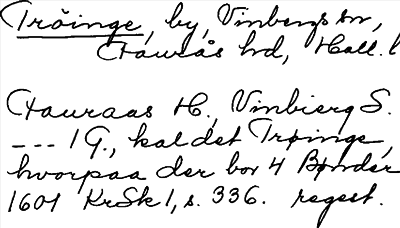 Tröinge, by, Vinbergs sn,
Faurås hd, Hall. l
Fauraas H., Vinbierg S.
--- 1 G., kaldet Trøinge,
hvorpaa der bor 4 Bønder
1601 KrSk 1, s. 336. regest.